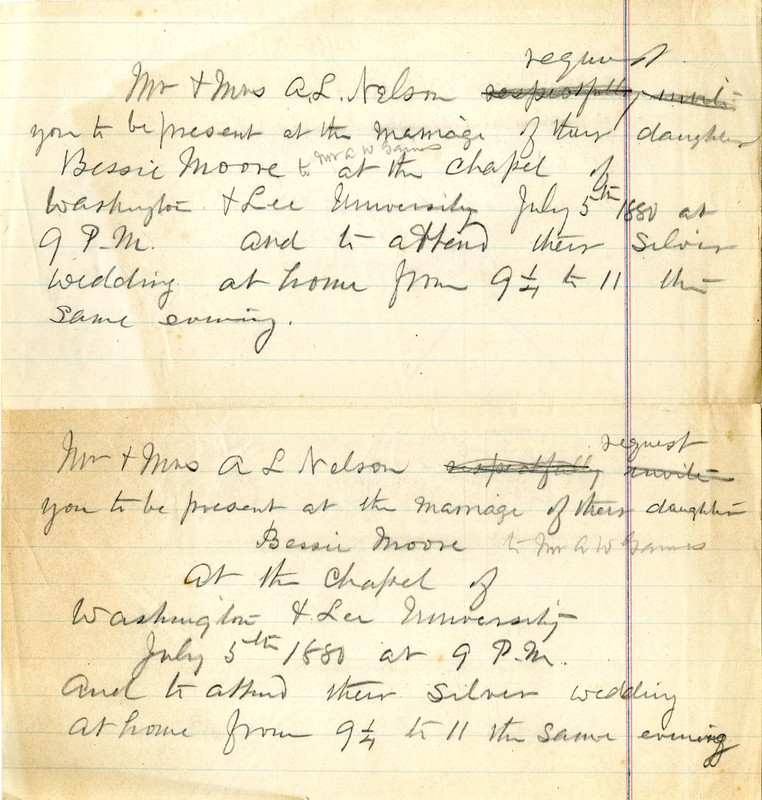 request
Mr & Mrs A. L. Nelson respectfully invite
you to be present at the marriage of their daughter
Bessie Moore to Mr A W at the chapel of
Washington & Lee University July 5th 1880 at
9 P.M. and to attend their Silver
wedding at home from 9 1/4 to 11 the
same evening.
request
Mr & Mrs A L Nelson respectfully invite
you to be present at the marriage of their daughter
Bessie Moore to Mr A W
At the chapel of
Washington & Lee University
July 5th 1880 at 9 P.M.
And to attend their Silver wedding
at home from 9 1/4 to 11 the same evening